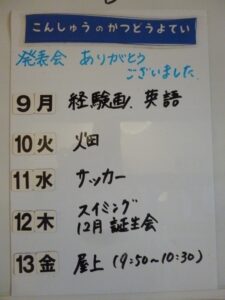 こんしゅうのかつどうよてい
発表会 ありがとう
ございました
9月 経験画、英語
10火 畑
11水 サッカー
12木 スイミング
12月誕生会
13金 屋上(9:50~10:30)